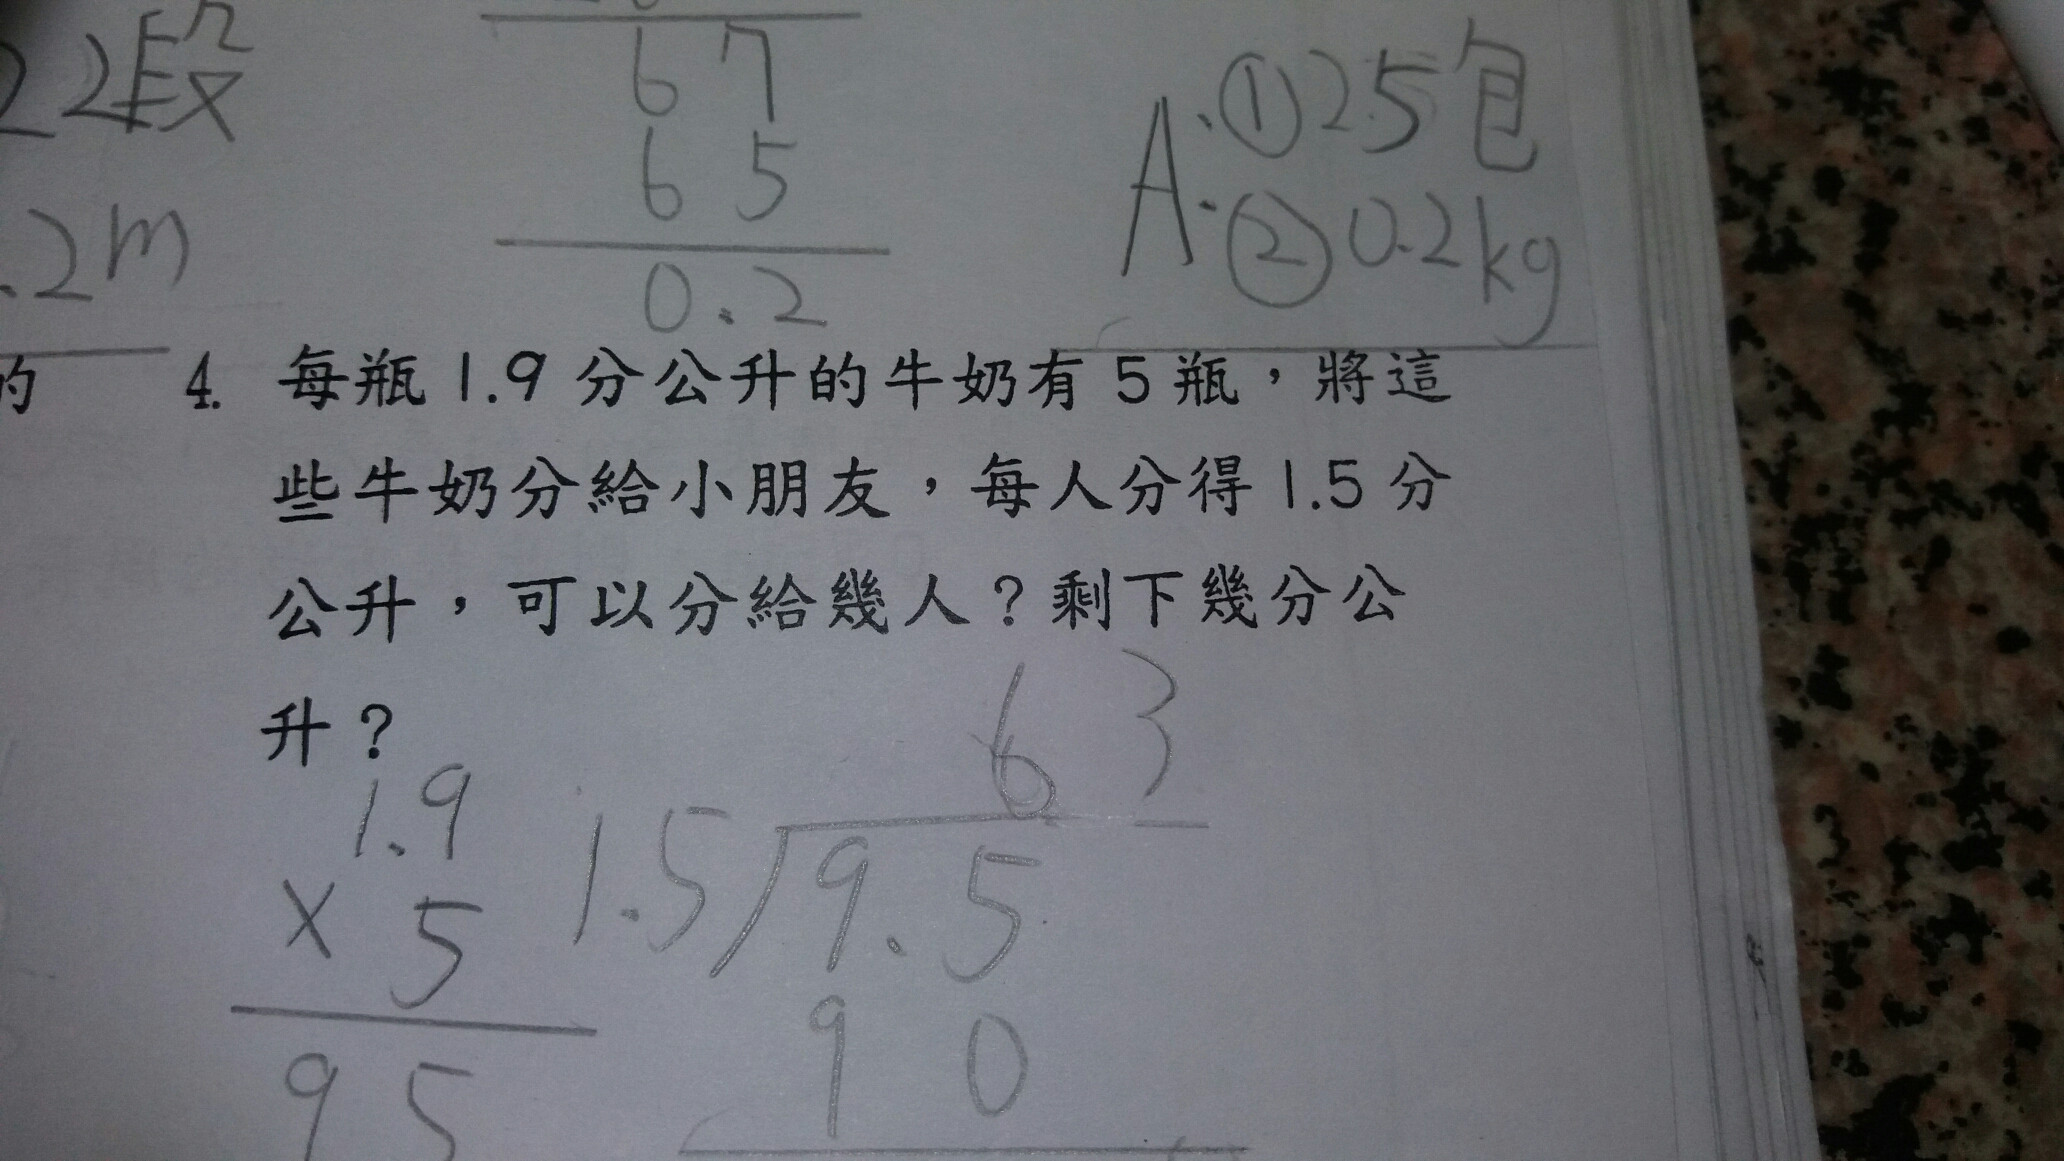 22段
.2m
的
6 7
6 5
0.2
A: ①25包
②0.2kg
4. 每瓶1.9分公升的牛奶有5瓶，將這
些牛奶分給小朋友，每人分得1.5分
公升，可以分給幾人？剩下幾分公
升？
1.9
× 5
9 5
6 3
1.5)9.5
9 0